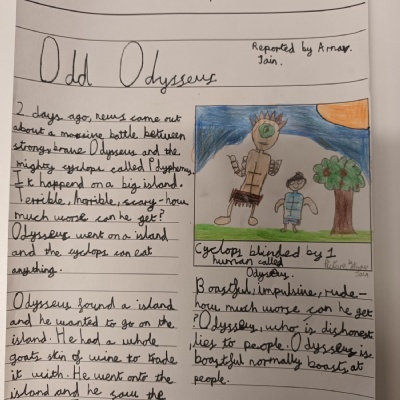 Reported by Arnav
Jain.
Odd Odysseus
2 days ago, news came out
about a massive battle between
strong, brave Odysseus and the
mighty cyclops called Polyphemus.
It happend on a big island.
Terrible, horrible, scary - how
much worse can he get?
Odysseus went on a island
and the cyclops can eat
anything.
Odysseus found a island
and he wanted to go on the
island. He had a whole
goats skin of wine to trade
it with. He went onto the
island and he saw the
Cyclops blinded by 1
human called
Odyseus.
Picture by Arnav
Jain
Boastful, impulsive, rude -
how much worse can he get
? Odysseus, who is dishonest,
lies to people. Odysseus is
boastful normally boasts at
people.